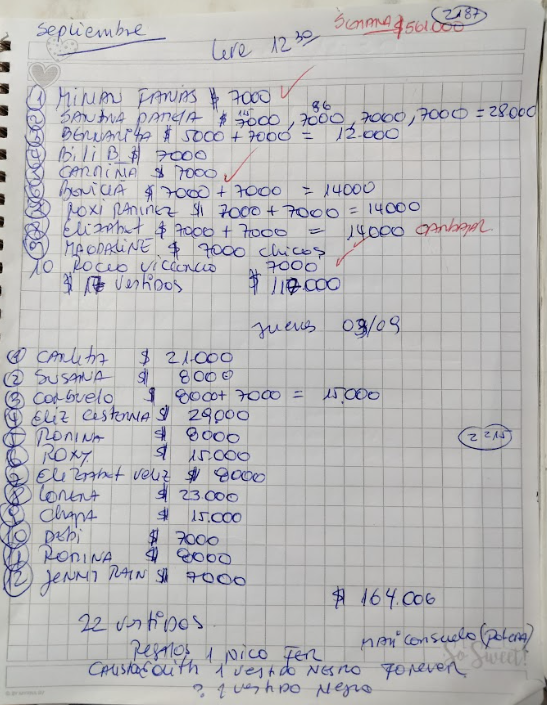 Septiembre
SEMANA $561.000
2187
Leve 12 30
1 MIRIAN FARIAS $ 7000
2 SANDRA $ 7000, 7000, 7000, 7000 = 28000
86
BERNARDITA $ 5000 + 7000 = 12.000
BILI B $ 7000
CARNINA $ 7000
6 BENICIA $ 7000 + 7000 = 14000
ROXI RAMIREZ $ 7000 + 7000 = 14000
8 Elizabet $ 7000 + 7000 = 14000
9 MAGDALINE $ 7000 chicos
10 Rocio Vicencio 7000
$ 17 vestidos $ 117.000
Jueves 03/09
1 CARLITA $ 21.000
2 SUSANA $ 8000
3 CONSUELO $ 8000 + 7000 = 15.000
4 ELIZ $ 29,000
ROMINA $ 8000
2215
6 ROXY $ 15.000
7 ELIZABET VELIZ $ 8000
8 LORENA $ 23.000
9 CHAPA $ 15.000
10 DEBI $ 7000
11 ROMINA $ 8000
12 JENNIT RAIN $ 7000
$ 164.006
22 vestidos.
CONSUELO (POLERA)
1 PICO FER
1 vestido Negro Forever
1 vestido Negro
So Sweet!